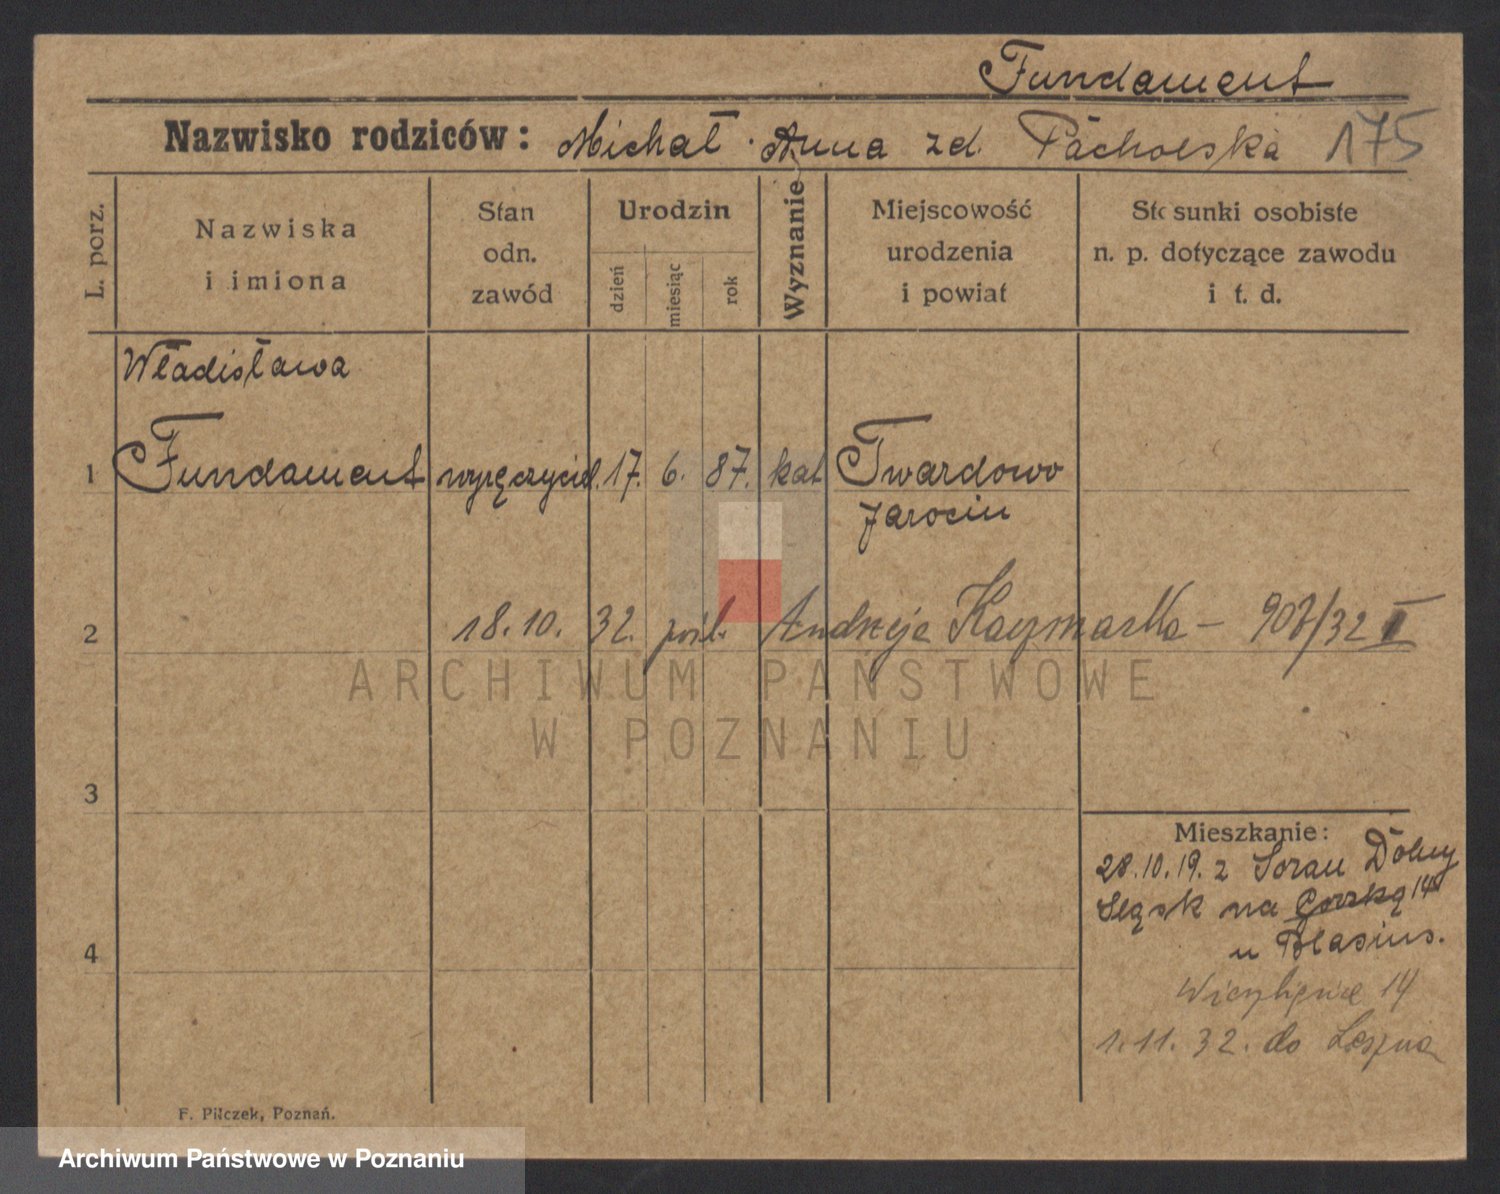 Fundament
Nazwisko rodziców: Michał Anna zd. Pacholska 175
L. porz.
Nazwiska
i imiona
Stan
odn.
zawód
Urodzin
dzień
miesiąc
rok
Wyznanie
Miejscowość
urodzenia
i powiat
Stosunki osobiste
n. p. dotyczące zawodu
i t. d.
Władisława
1 Fundament wyręczyciel. 17. 6. 87. kat Twardowo
Jarocin
2 18. 10. 32. Kaczmarka - /32 II
ARCHIWUM PAŃSTWOWE
W POZNANIU
3
Mieszkanie:
28.10.19. z Sorau Dolny
Śląsk na 14
4 u Blasius.
14
1. 11. 32. do Leszna
F. Pilczek, Poznań.
Archiwum Państwowe w Poznaniu